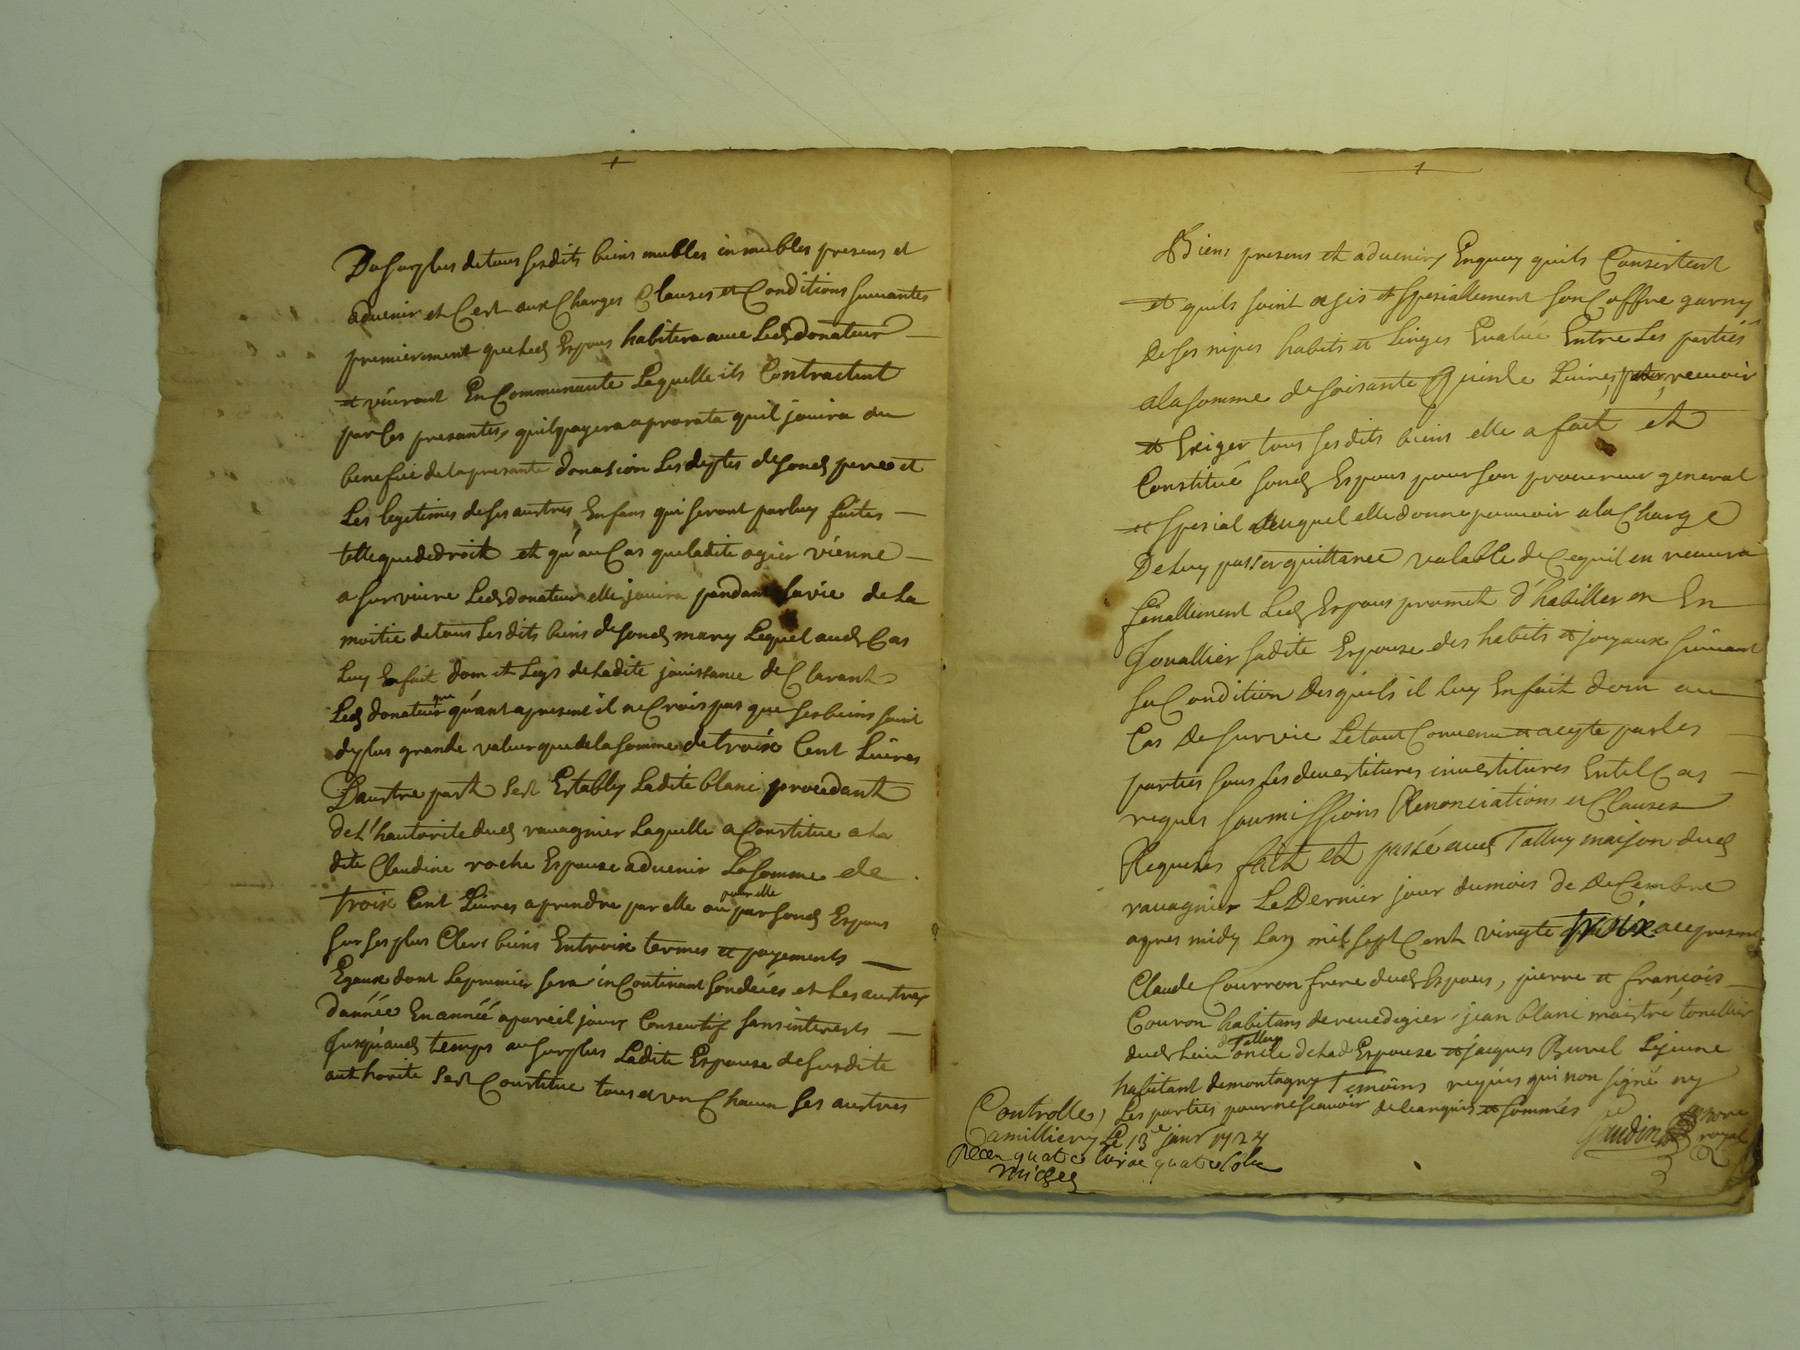 Du surplus de tous sesdits biens meubles inmeubles presens et
advenir et C'est aux Charges Clauses et Conditions suivantes
premierement que Led Espoux habitera avec Led donateur
et vivront En Communauté Laquelle ils Contractent
par Ces presantes, quil payera a prorata quil jouira du
benefice de la presante donasion Les deptes de sond pere et
Les legitimes de ses austres Enfans qui seront par luy faites
telle que de droit et qu'au Cas que ladite agier vienne
a survivre Led donateur elle jouira pendant sa vie de La
moitie de tous Lesdits biens de sond mary Lequel aud Cas
Luy En fait dom et Legs de Ladite jouissance de Clarant
Led donateur que quant apresent il ne Crois pas que ses biens soint
de plus grande valeur que de la somme de troix Cent Livres
D'austre part s'est Establys Ladite blanc procedant
de L'hautorite dud ravagnier Laquelle a Constitue a La
dite Claudine roche Espouse advenir La somme de
troix Cent Livres a prendre par elle ou pour elle par sond Espoux
sur ses plus Clers biens En troix termes et payements
Egaux dont Le premier sera inContinant son decés et Les austres
d'année En année a pareil jour Consecutif sans interests
Jusqu'aud temps au surplus Ladite Espouse de susdite
authorite s'est Constitue tous et un Chacun ses austres
Biens presens et advenir En quoy quils Consistent
et quils soint asis et spesiallement son Coffre garny
de ses nipes habits et Linges Evalué Entre Les partiés
a la somme de soisante quinze Livres, recevoir
et Exiger tous sesdits biens elle a fait et
Constitué sond Espoux pour son procureur general
et spesial auquel elle donne pouvoir a la Charge
De Luy passer quittance valable de Ce quil en recevra
finallement Led Espoux promet d'habiller en En
Jouallier sadite Espouse des habits et joyaux suivant
sa Condition Desquels il luy En fait dom au
Cas De survie Le tout Convenu et acepté par les
parties sous Les devestitures investitures En tel Cas
requis soumissions Renonciations et Clauses
Requises fait et passé aud Talluy maison dud
ravagnier Le Dernier jour du mois de deCembre
apres midy Lan mil sept Cent vingte troix en presence
Claude Courron frere dud Espoux, pierre et françois
Couron habitans de rivedegier, jean blanc maistre tonellier
dud Lieu de Talluy oncle de Lad Espouse et jacques Buvel Lejeune
habitant de montagny Temoins requis qui non signé ny
Les parties pour ne scavoir de Ce anquis et sommés
Gaudin nore royal
Controllé a
Camilliery Le 13e janr 1724
Recu quatre Livre quatre sols